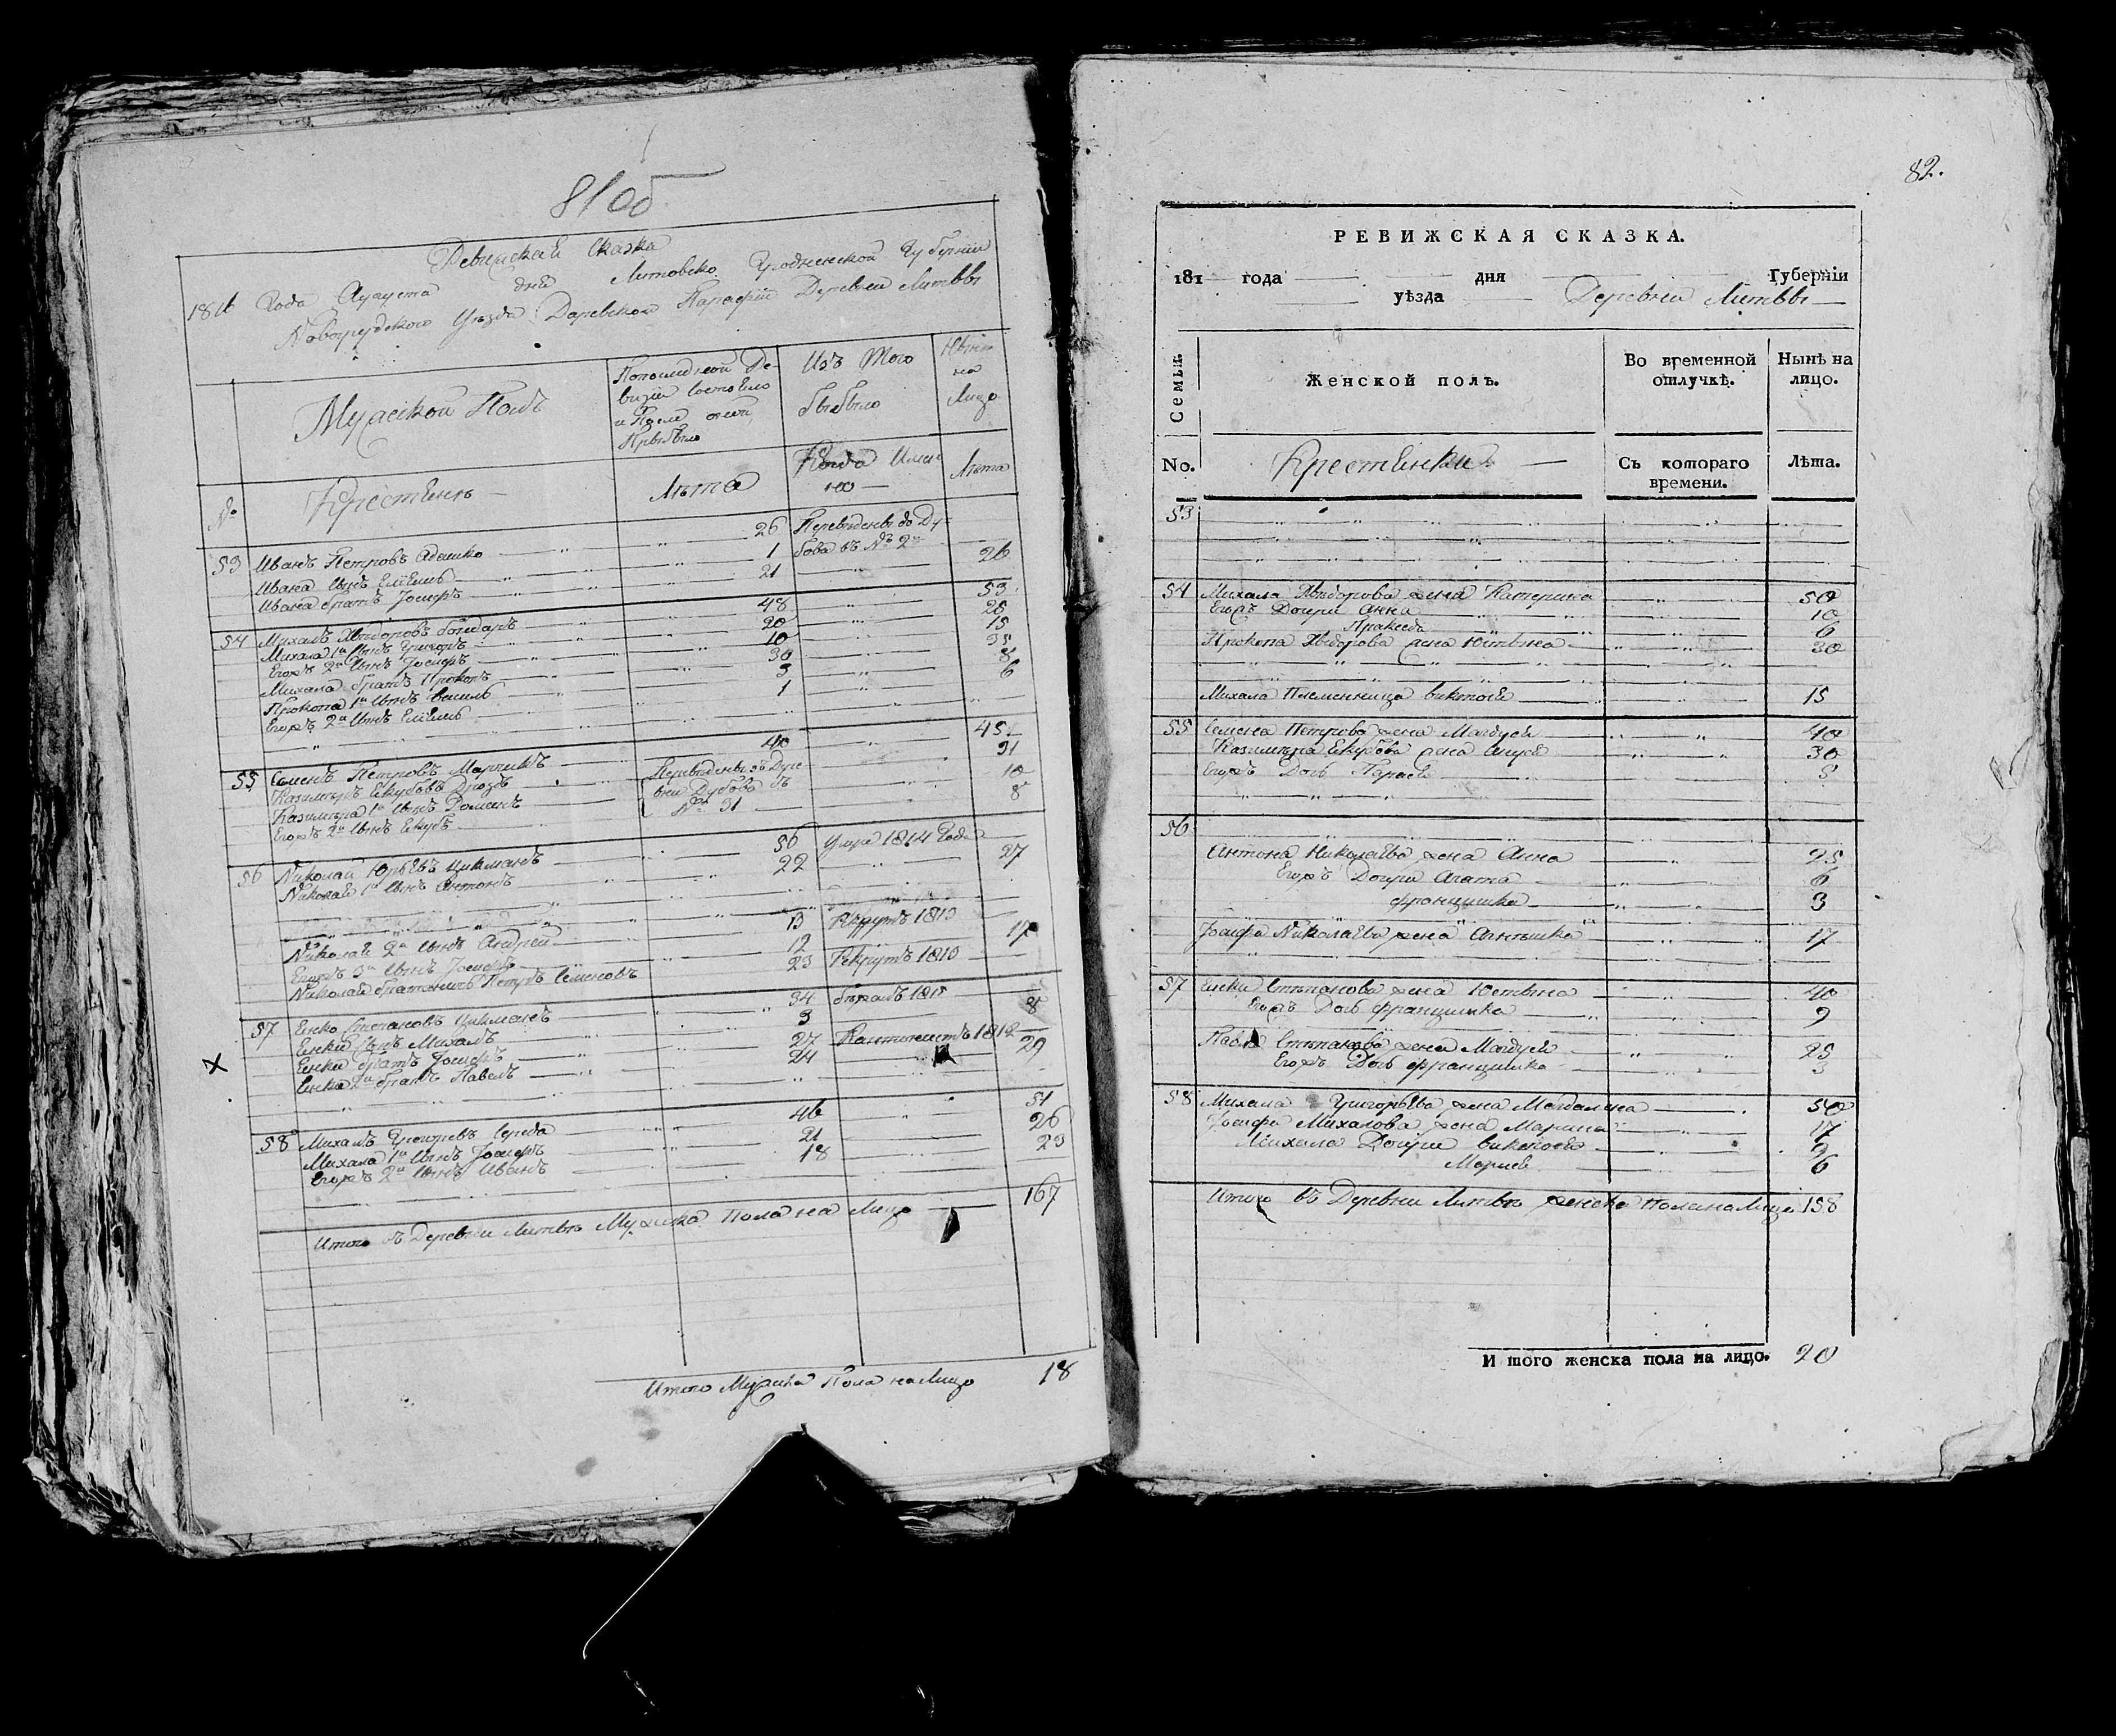 81об
Ревижская Сказка
1816 Года Августа дня Литовско Гродненской Губернии
Новогрудского Уезда Даревской Парафии Деревни Литввы
Мужеской Полъ
По последней Ре-
визии состояло
и После оной
Прибыло
Изъ Того
выбыло
Ныне
на
Лицо
№
Крестяне
Лѣта
Когда Имен
но
Лѣта
53 Иванъ Петровъ 26 Переведены до Ду-
Ивана Сынъ 1 бова въ № 2
Ивана братъ Іосифъ 21 26
54 Михалъ Хведоровъ бондаръ 48 53
Михала 1й Сынъ Григоръ 20 25
Егожъ 2й Сынъ Іосифъ 10 15
Михала братъ Прокопъ 30 35
Прокопа 1й Сынъ василь 3 8
Егожъ 2й Сынъ 1 6
55 Семенъ Петровъ 40 45
Казимеръ Екубовъ Дроздъ Переведены зъ Дере 31
Казимера 1й Сынъ Романъ вни Дубова въ 10
Егожъ 2й Сынъ Екубъ № 31 8
56 Николай Юрьевъ Цикманъ 56 Умре 1814 Года
Николая 1й Сынъ Антонъ 22 27
Николая 2й Сынъ Андрей 13 Рекрутъ 1813
Егожъ 3й Сынъ Іосифъ 12 17
Николая братаничъ Петръ Семеновъ 23 Рекрутъ 1813
57 Енко Степановъ Цикманъ 34 бежалъ 1815
Енки Сынъ Михалъ 3 8
Енки братъ Іосифъ 27 1812
Енки 2й братъ Павелъ 24 29
58 Михалъ Григоревъ Середа 46 51
Михала 1й Сынъ Іосифъ 21 26
Егожъ 2й Сынъ Иванъ 18 23
Итого въ Деревни Литвѣ Мужска Пола на Лицо 167
Итого Мужска Пола на Лицо 18
82.
РЕВИЖСКАЯ СКАЗКА.
181 года дня Губерніи
уѣзда Деревни Литввы
Семьи.
Женской полъ.
Во временной
отлучкѣ.
Нынѣ на
лицо.
No.
Крестянки
Съ котораго
времени.
Лѣта.
53
54 Михала Хведорова жена Катерина 50
Егожъ Дочери Анна 10
6
Прокопа Хведорова жена Юстына 30
Михала Племенница викторя 15
55 Семена Петрова жена Магдуся 40
Казимера Екубова жена 30
Егожъ Дочь 5
56
Антона Николаева жена Анна 25
Егожъ Дочери Агата 6
францишка 3
Іосифа Николаева жена Агнешка 17
57 Енки Степанова жена Юстына 40
Егожъ Дочь францишка 9
Павла Степанова жена Магдуся 25
Егожъ Дочь францишка 3
58 Михала Григорьева жена Магдалена 50
Іосифа Михалова жена Марина 17
Михала Дочери викторя 9
Марися 6
Итого въ Деревни Литвѣ женска Пола на Лицо 158
И того женска пола на лицо. 20